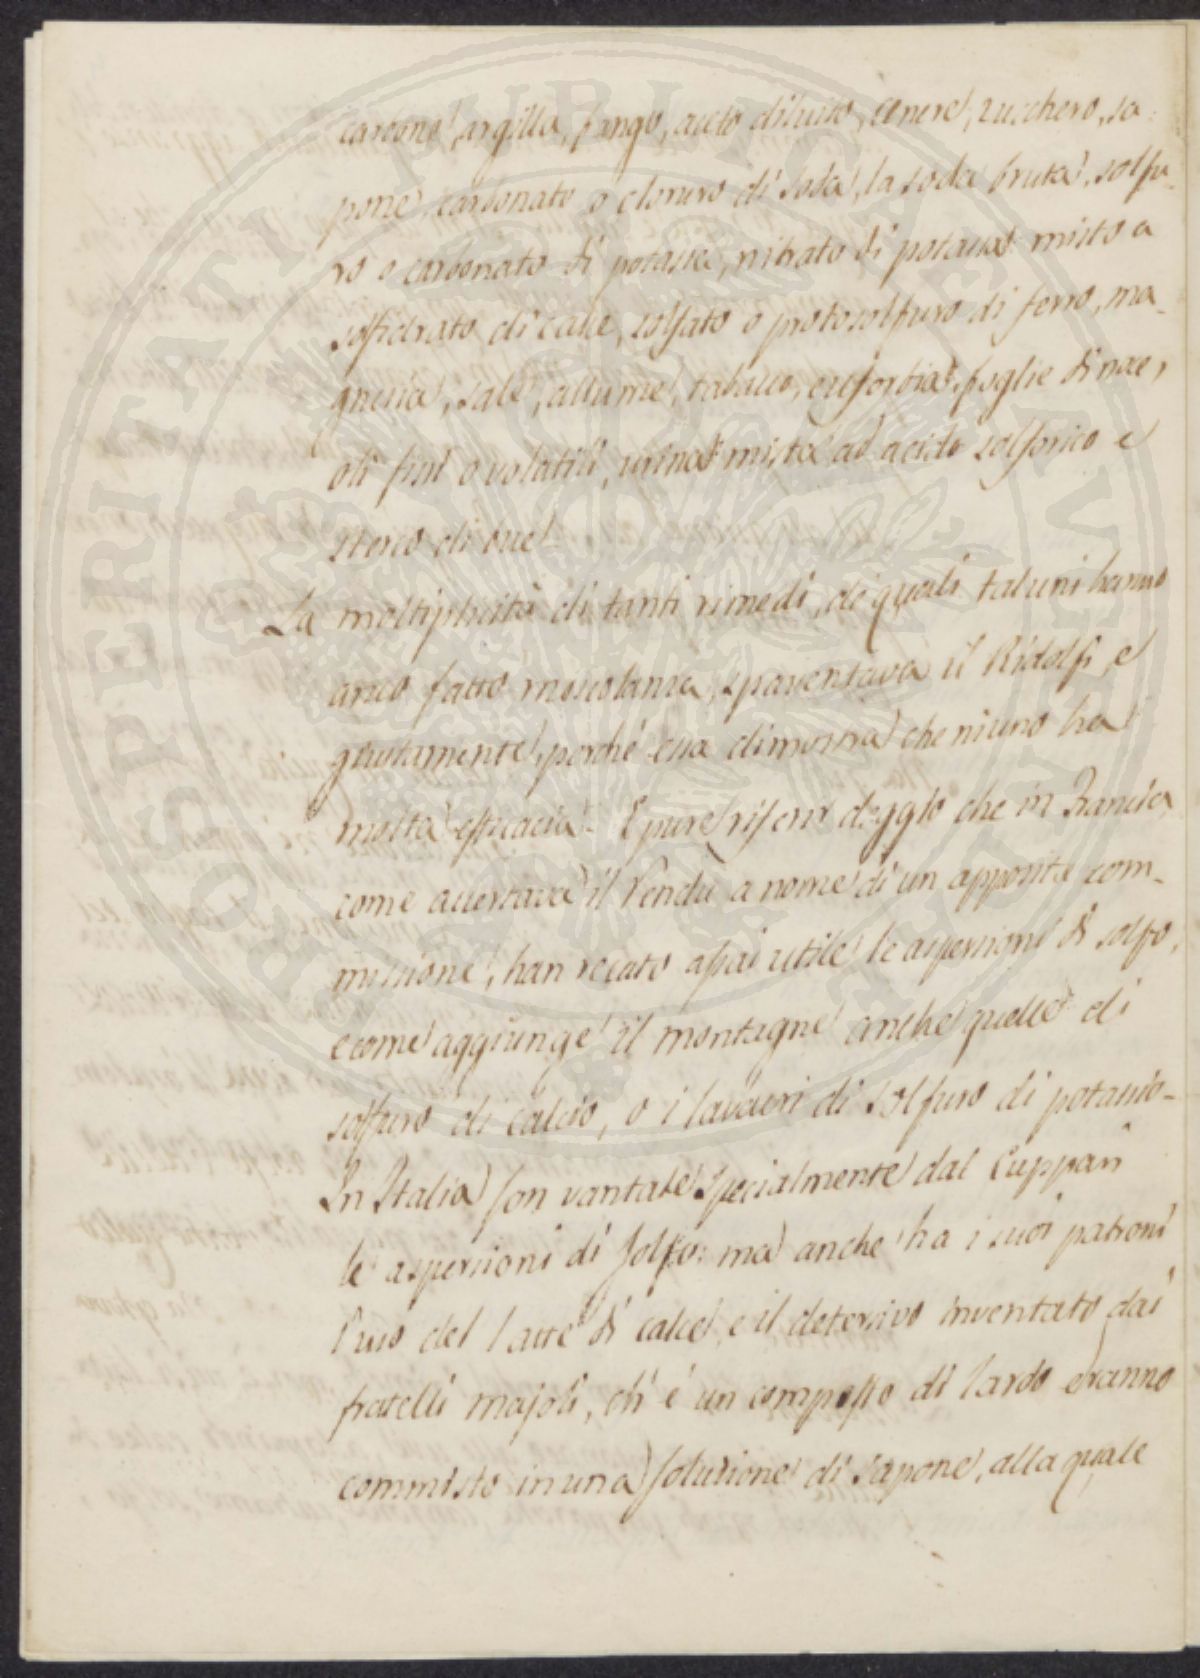 carbone, argilla, fango, aceto diluito, cenere, zucchero, sa-
pone, carbonato o cloruro di soda, la soda bruta, solfu-
ro o carbonato di potassa, nitrato di potassa misto a
solfidrato di calce, solfato o protosolfuro di ferro, ma-
gnesia, sale, allume, tabacco, euforbia, foglie di noce,
oli fissi o volatili, urina mista ad acido solforico e
sterco di bue.
La moltiplicità di tanti rimedi, de' quali taluni hanno
anco fatto mescolanza, spaventava il Ridolfi, e
giustamente, perchè essa dimostra che niuno ha
molta efficacia. Epure riferir deggio che in Francia,
come accertava il Rendu a nome di un apposita com-
missione, han recato assai utile le aspersioni di solfo,
e come aggiunge il Montagne anche quelle di
solfuro di calcio, o i lavacri di solfuro di potassio.
In Italia son vantate specialmente dal Cuppari
le aspersioni di solfo: ma anche ha i suoi patroni
l'uso del latte di calce, e il detersivo inventato dai
fratelli Majoli, ch'è un composto di lardo e ranno
commisto in una soluzione di sapone, alla quale
PROSPERITATI PUBLICAE AUGENDAE